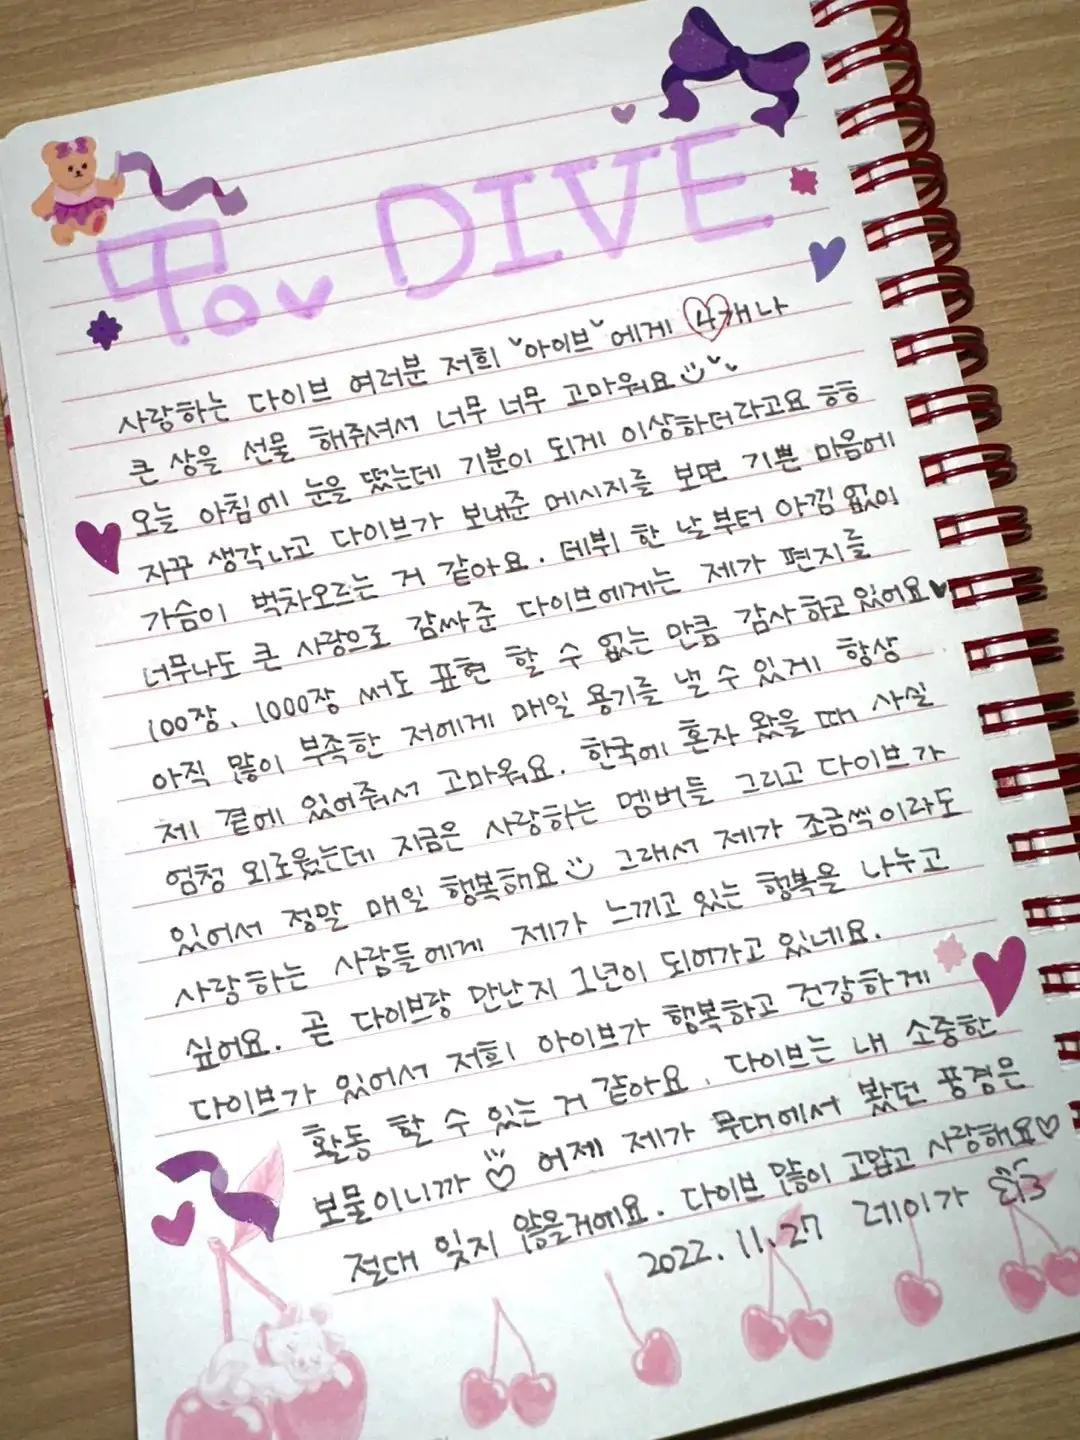 To. DIVE
사랑하는 다이브 여러분 저희 "아이브"에게 4개나
큰 상을 선물 해주셔서 너무 너무 고마워요
오늘 아침에 눈을 떴는데 기분이 되게 이상하더라고요 ㅎㅎ
자꾸 생각나고 다이브가 보내준 메시지를 보면 기쁜 마음에
가슴이 벅차오르는 거 같아요. 데뷔 한 날부터 아낌 없이
너무나도 큰 사랑으로 감싸준 다이브에게는 제가 편지를
100장, 1000장 써도 표현 할 수 없는 만큼 감사하고 있어요♥
아직 많이 부족한 저에게 매일 용기를 낼 수 있게 항상
제 곁에 있어줘서 고마워요. 한국에 혼자 왔을 때 사실
엄청 외로웠는데 지금은 사랑하는 멤버들 그리고 다이브가
있어서 정말 매일 행복해요 그래서 제가 조금씩이라도
사랑하는 사람들에게 제가 느끼고 있는 행복을 나누고
싶어요. 곧 다이브랑 만난지 1년이 되어가고 있네요.
다이브가 있어서 저희 아이브가 행복하고 건강하게
활동 할 수 있는 거 같아요. 다이브는 내 소중한
보물이니까 ♡ 어제 제가 무대에서 봤던 풍경은
절대 잊지 않을거에요. 다이브 많이 고맙고 사랑해요♡
2022. 11. 27 레이가